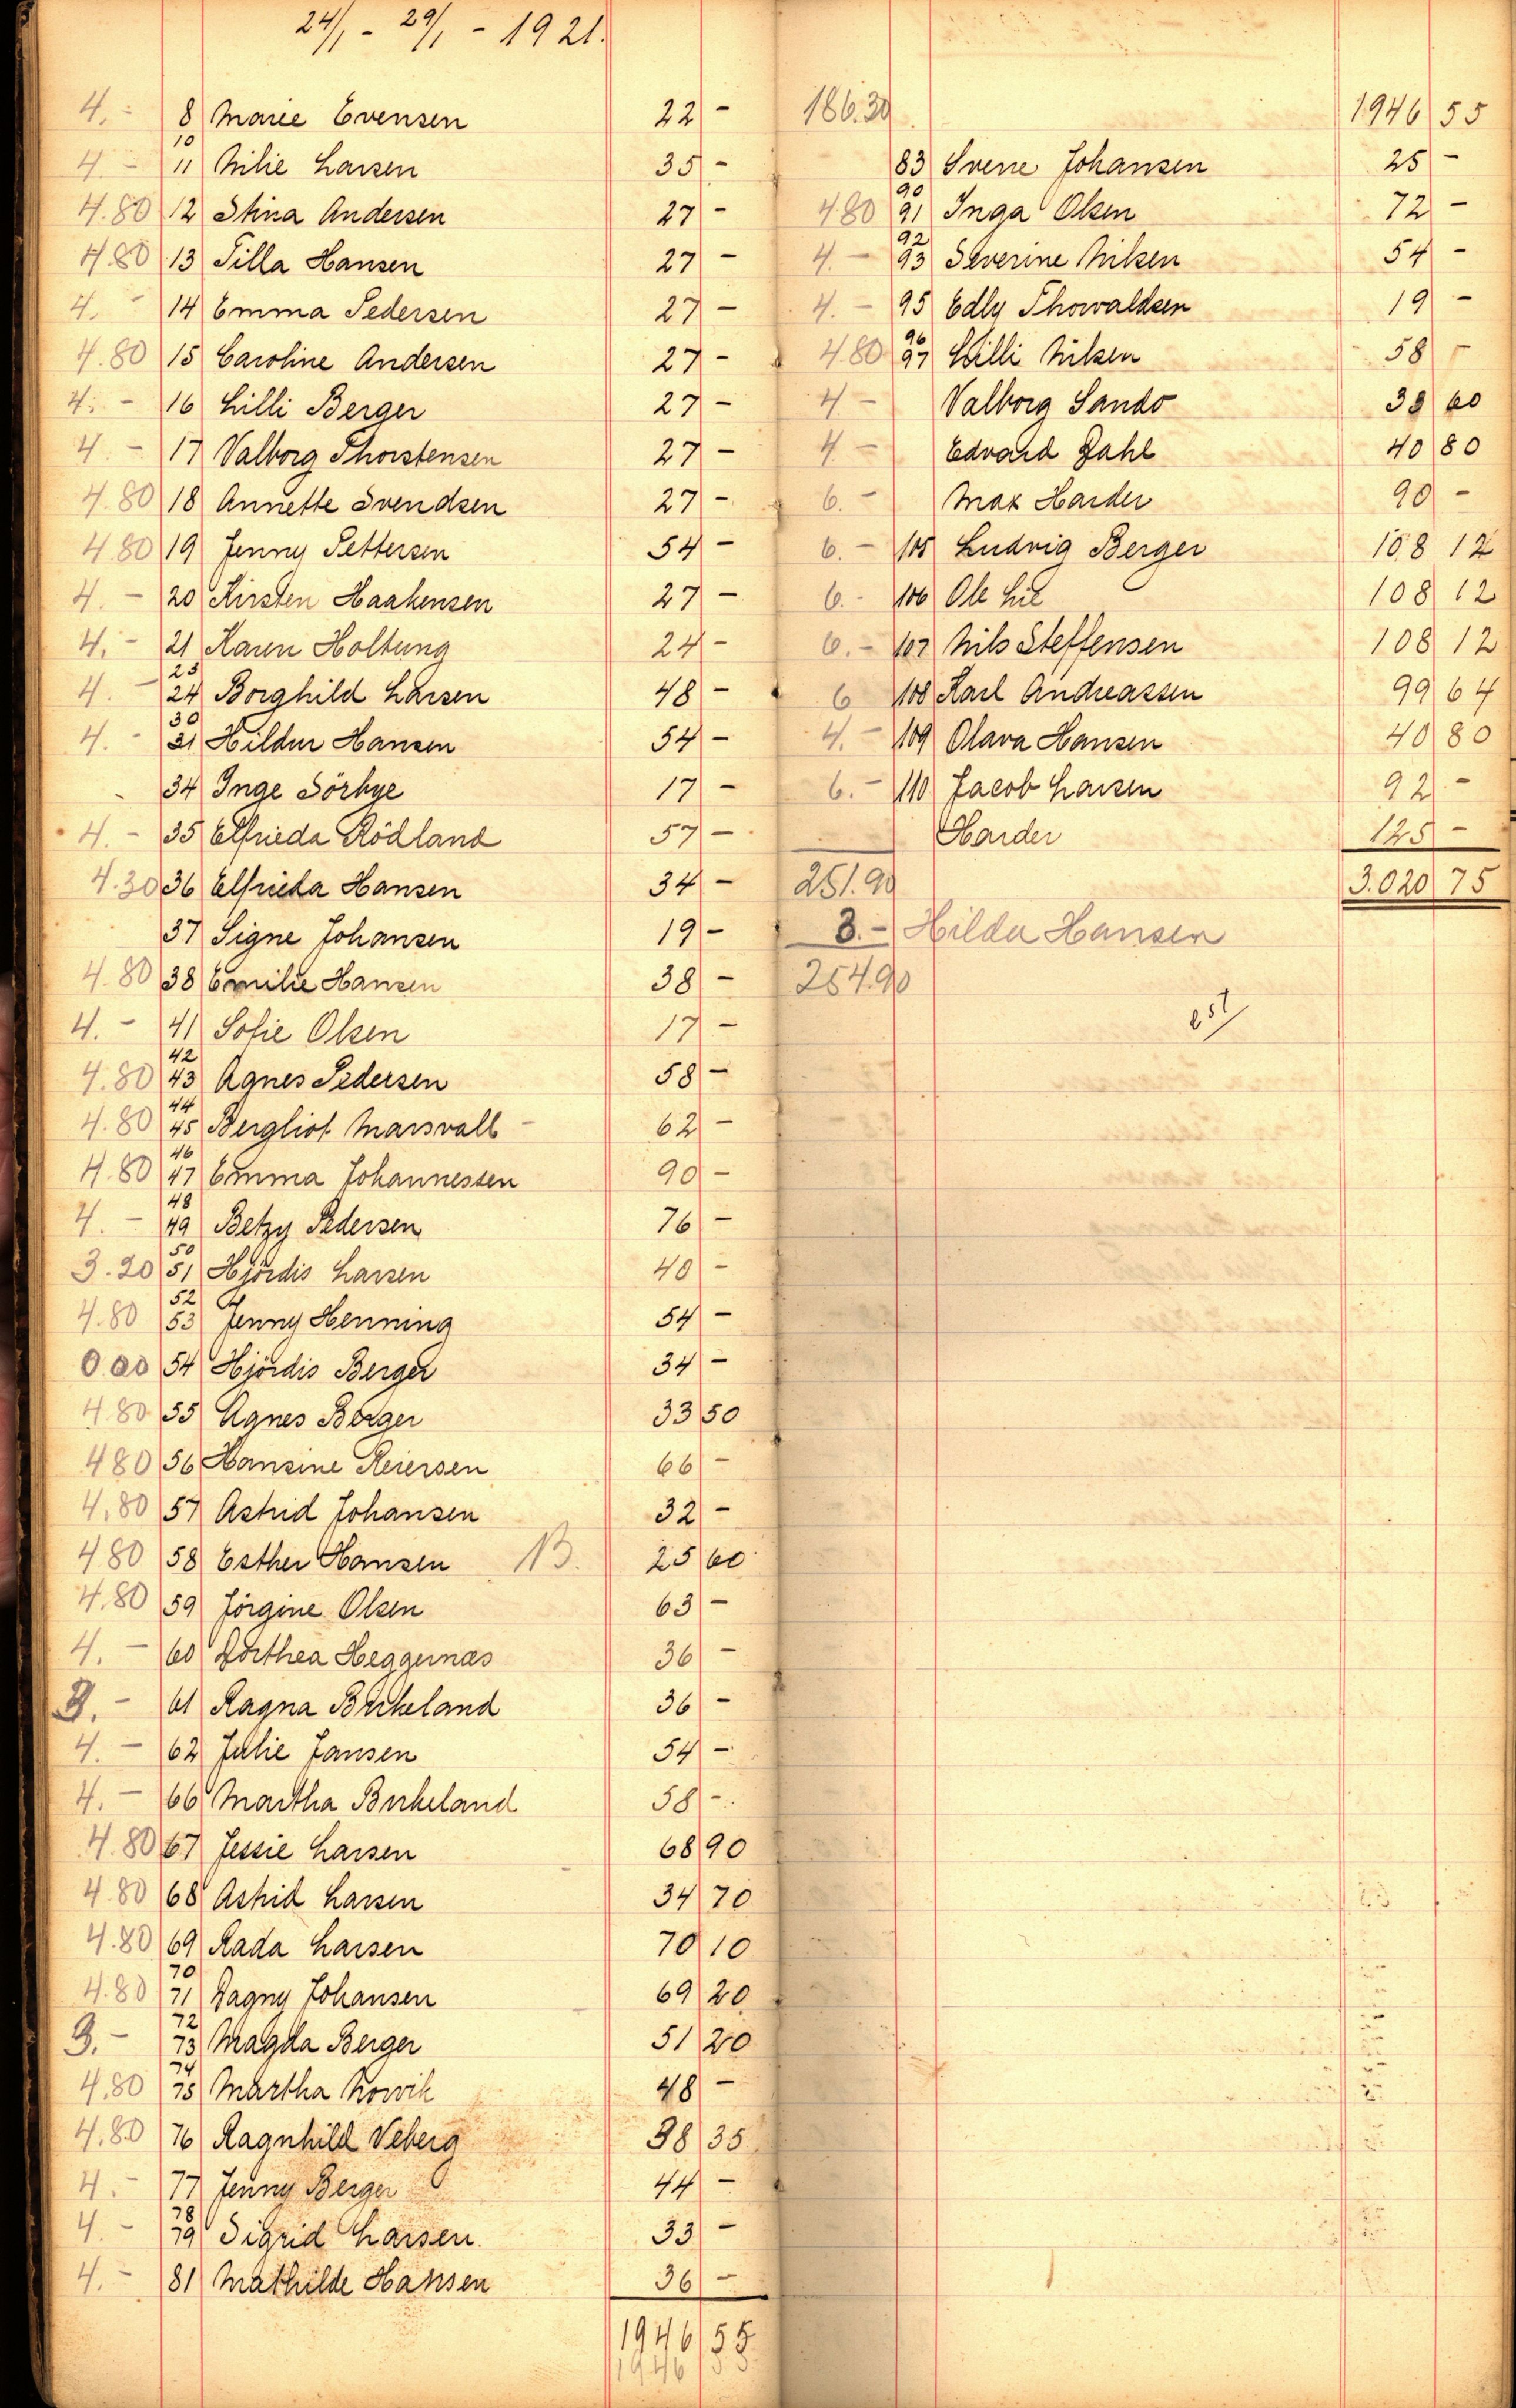 24/1 - 29/1 - 1921.
4.- 8 Marie Evensen 22 -
10
4. - 11 Milie Larsen 35 -
4.80 12 Stina Andersen 27 -
4.80 13 Tilla Hansen 27 -
4. - 14 Emma Pedersen 27 -
4.80 15 Caroline Andersen 27 -
4. - 16 Lilli Berger 27 -
4. - 17 Valborg Thorstensen 27 -
4.80 18 Annette Svendsen 27 -
4.80 19 Jenny Pettersen 54 -
4. - 20 Kirsten Haakensen 27 -
4. - 21 Karen Holtung 24 -
23
4. - 24 Borghild Larsen 48 -
30
4. - 31 Hildur Hansen 54 -
34 Inge Sörbye 17 -
4. - 35 Elfrieda Rödland 57 -
4.30 36 Elfrieda Hansen 34 -
37 Signe Johansen 19 -
4.80 38 Emilie Hansen 38 -
4. - 41 Sofie Olsen 17 -
42
4.80 43 Agnes Pedersen 58 -
44
4.80 45 Bergliot Marsvall - 62 -
46
4.80 47 Emma Johannessen 90 -
48
4. - 49 Betzy Pedersen 76 -
50
3.20 51 Hjördis Larsen 40 -
52
4.80 53 Jenny Henning 54 -
54 Hjördis Berger 34 -
4.80 55 Agnes Berger 33 50
480 56 Hansine Reiersen 66 -
4.80 57 Astrid Johansen 32 -
480 58 Esther Hansen 13. 25 60
4.80 59 Jörgine Olsen 63 -
4. - 60 Dorthea Heggernæs 36 -
3. - 61 Ragna Birkeland 36 -
4. - 62 Julie Jansen 54 -
4. - 66 Martha Birkeland 58 -
4.80 67 Jessie Larsen 68 90
480 68 Astrid Larsen 34 70
4.80 69 Rada Larsen 70 10
70
4.80 71 Dagny Johansen 69 20
72
3.- 73 Magda Berger 51 20
74
4.80 75 Martha Norvik 48 -
4.80 76 Ragnhild Veberg 38 35
4. - 77 Jenny Berger 44 -
78
4. - 79 Sigrid Larsen 33 -
4. - 81 Mathilde Hansen 36 -
1946 55
1946 55
186.30 1946 55
83 Svene Johansen 25 -
90
480 91 Inga Olsen 72 -
92
4. - 93 Severine Nilsen 54 -
4. - 95 Edly Thorvaldsen 19 -
96
4.80 97 Lilli Nilsen 58 -
4 - Valborg Sando 38 60
4. - Edvard Dahl 40 80
6. - Max Harder 90 -
6. - 105 Ludvig Berger 108 12
6. - 106 Ole Lie 108 12
6. - 107 Nils Steffensen 108 12
6 108 Karl Andreassen 99 64
4. - 109 Olava Hansen 40 80
6. - 110 Jacob Larsen 92 -
Harder 125 -
251.90 3.020 75
3.- Hilda Hansen
254.90